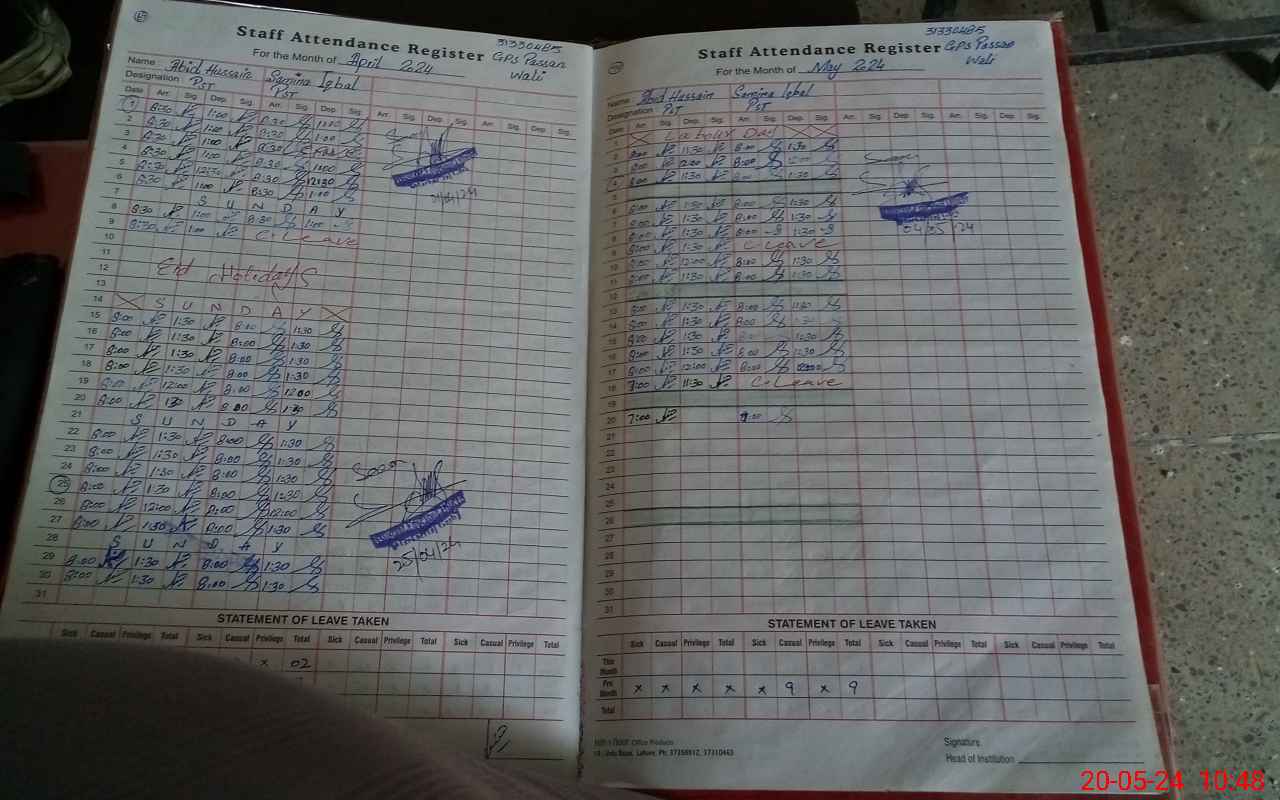 Staff Attendance Register
31330485
For the Month of April 2024
GPS Passan
Wali
Name Abid Hussain Samina Iqbal
Designation PST PST
Date Arr. Sig. Dep. Sig. Arr. Sig. Dep. Sig. Arr. Sig. Dep. Sig. Arr. Sig. Dep. Sig.
1 8:30 1:00 8:30 1:00
2 8:30 1:00 8:30 1:00
3 8:30 1:00 8:30
4 8:30 1:00 8:30 1:00
5 8:30 12:30 8:30 12:30
6 8:30 1:00 8:30 1:00
7 S U N D A Y
8 8:30 1:00 8:30 1:00
9 8:30 1:00 C-Leave
10
11
12 Eid Holidays
13
14 S U N D A Y
15 8:00 1:30 8:00 1:30
16 8:00 1:30 8:00 1:30
17 8:00 1:30 8:00 1:30
18 8:00 1:30 8:00 1:30
19 8:00 12:00 8:00 12:00
20 8:00 130 8:00 1:30
21 S U N D A Y
22 8:00 1:30 8:00 1:30
23 8:00 1:30 8:00 1:30
24 8:00 1:30 8:00 1:30
25 8:00 1:30 8:00 1:30
26 8:00 12:00 8:00 12:00
27 8:00 1:30 8:00 1:30
28 S U N D A Y
29 8:00 1:30 8:00 1:30
30 8:00 1:30 8:00 1:30
31
25/04/24
STATEMENT OF LEAVE TAKEN
Sick Casual Privilege Total Sick Casual Privilege Total Sick Casual Privilege Total Sick Casual Privilege Total
x 02
Staff Attendance Register
31330485
For the Month of May 2024
GPS Passan
Wali
Name Abid Hussain Samina Iqbal
Designation PST PST
Date Arr. Sig. Dep. Sig. Arr. Sig. Dep. Sig. Arr. Sig. Dep. Sig. Arr. Sig. Dep. Sig.
1 Labour Day
2 8:00 1:30 8:00 1:30
3 8:00 12:00 8:00 12:00
4 8:00 1:30 8:00 1:30
5
6 8:00 1:30 8:00 1:30
7 8:00 1:30 8:00 1:30
8 8:00 1:30 8:00 1:30
9 8:00 1:30 C-Leave
10 8:00 12:00 8:00 1:30
11 8:00 11:30 8:00 1:30
12
13 8:00 1:30 8:00 1:30
14 8:00 1:30 8:00 1:30
15 8:00 1:30 8:00 1:30
16 8:00 1:30 8:00 1:30
17 8:00 12:00 8:00 12:00
18 7:00 11:30 C-Leave
19
20 7:00 7:00
21
22
23
24
25
26
27
28
29
30
31
04/05/24
STATEMENT OF LEAVE TAKEN
Sick Casual Privilege Total Sick Casual Privilege Total Sick Casual Privilege Total Sick Casual Privilege Total
This Month
Pre Month x x x x x 9 x 9
Total
Office Products
Urdu Bazar, Lahore. Ph: 37358912, 37310463
Signature
Head of Institution
20-05-24 10:48